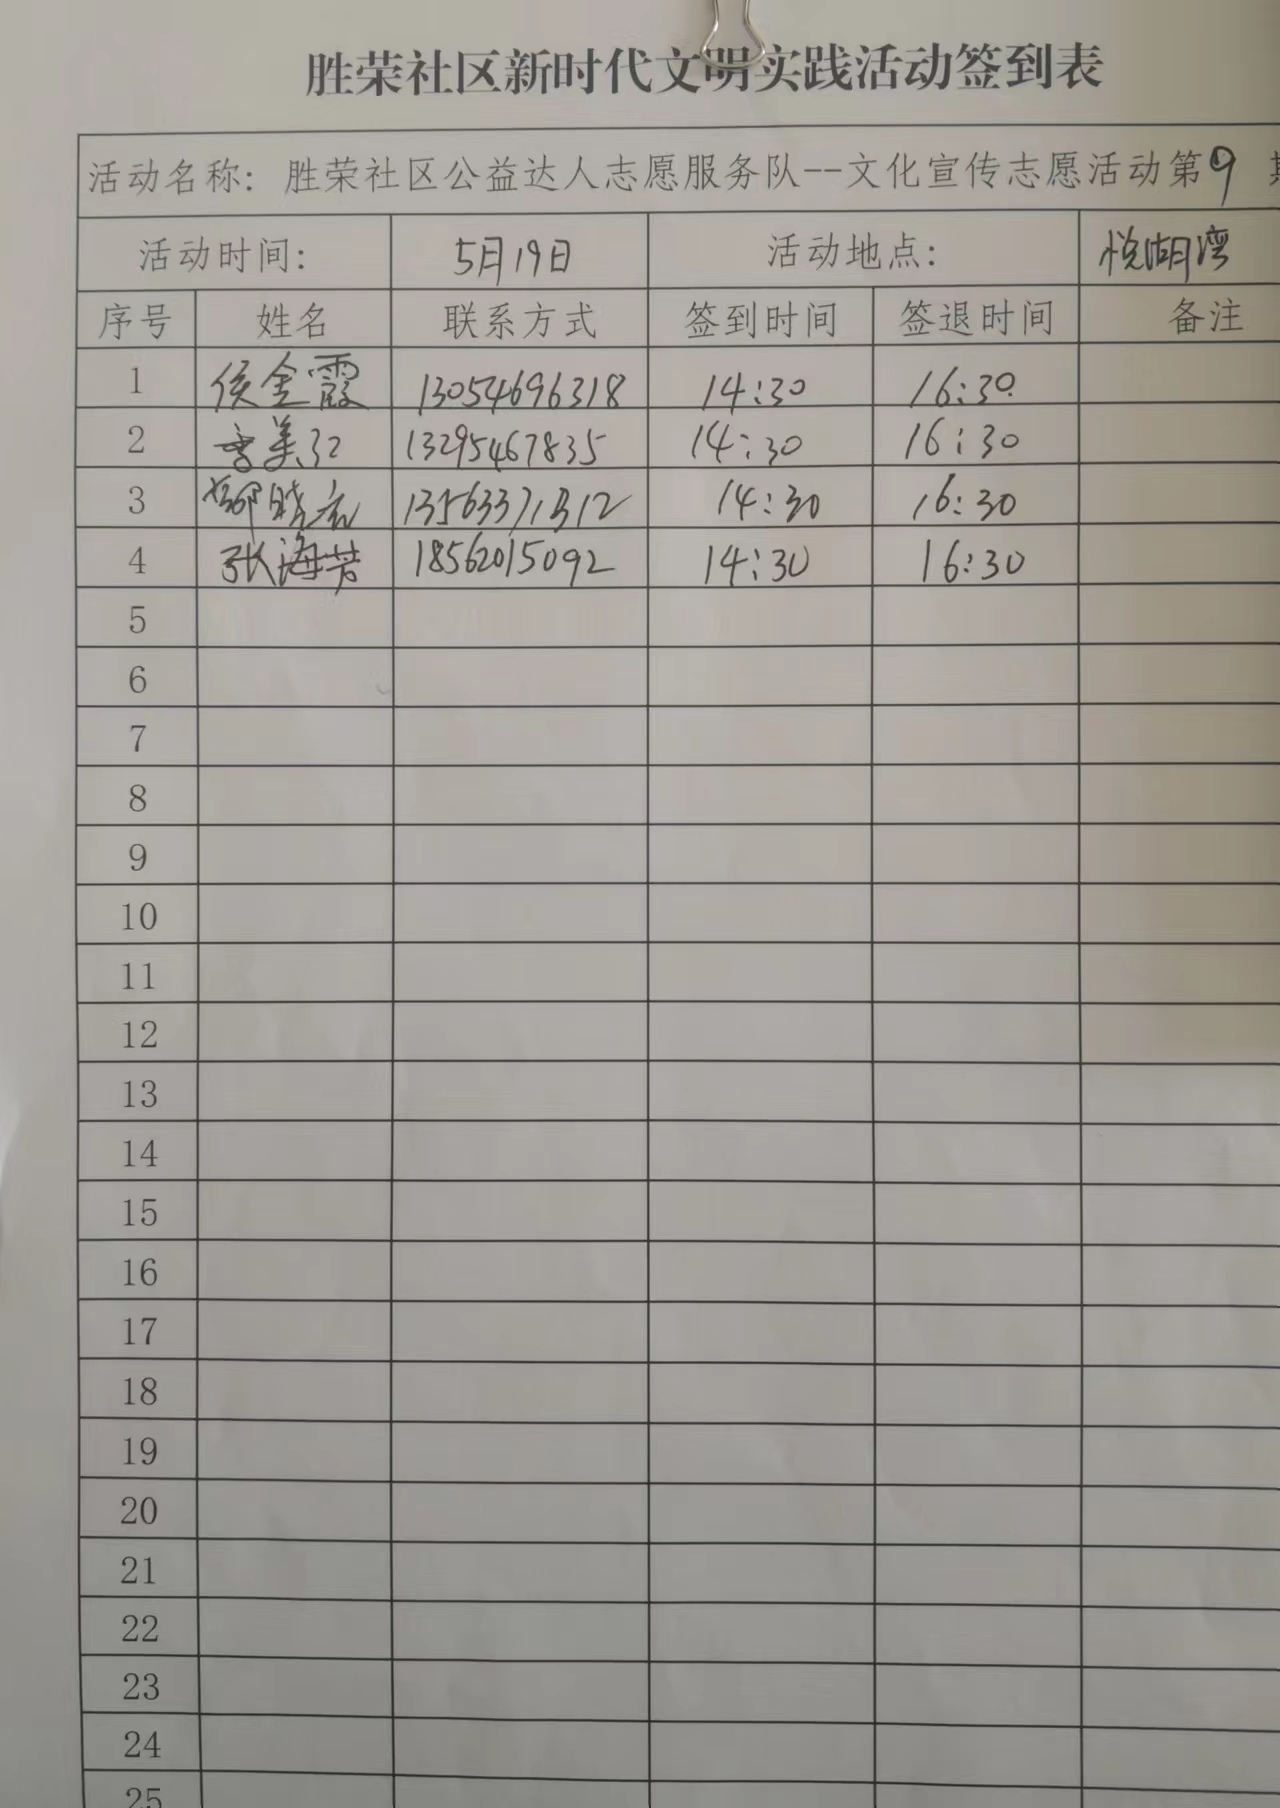 胜荣社区新时代文明实践活动签到表
活动名称: 胜荣社区公益达人志愿服务队--文化宣传志愿活动第9
活动时间: 5月19日 活动地点: 悦湖湾
序号 姓名 联系方式 签到时间 签退时间 备注
1 侯金霞 13054696318 14:30 16:30
2 李美江 13295467835 14:30 16:30
3 晓宏 14:30 16:30
4 张海芳 18562015092 14:30 16:30
5
6
7
8
9
10
11
12
13
14
15
16
17
18
19
20
21
22
23
24
25